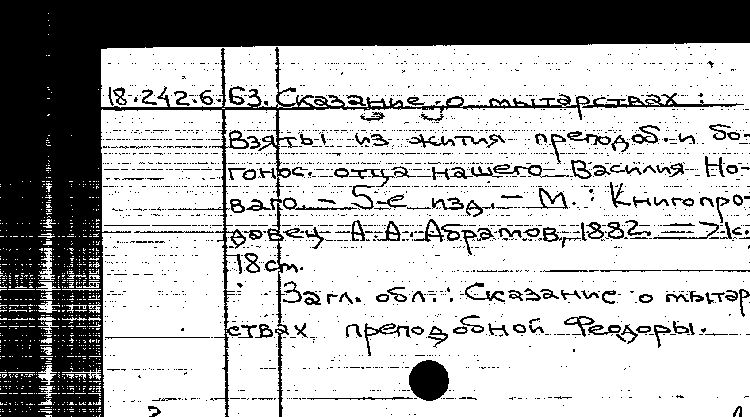 18.242.6.63. Сказание о мытарствах :
Взяты из жития преподоб. и бо-
гонос. отца нашего Василия Но-
ваго. – 5-е изд. – М. : Книгопро-
давец А. А. Абрамов, 1882. –
18 cm.
Загл. обл. : Сказание о мытар
ствах преподобной Феодоры.